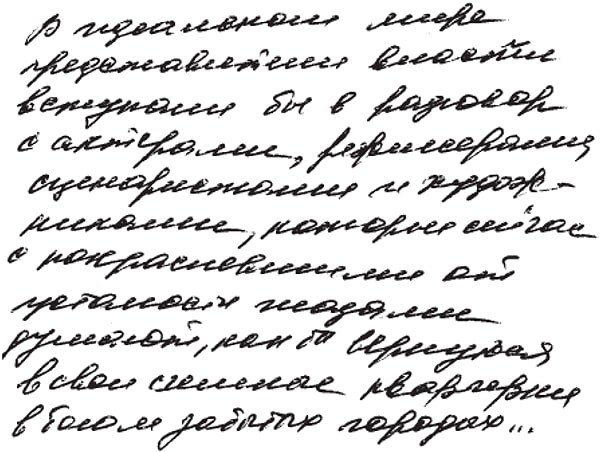 В идеальном мире
представители власти
вступали бы в разговор
с актёрами, режиссерами,
сценаристами и худож-
никами, которые сейчас
с покрасневшими от
усталости глазами
думают, как б вернуться
в свои съемные квартирки
в богом забытых городах...